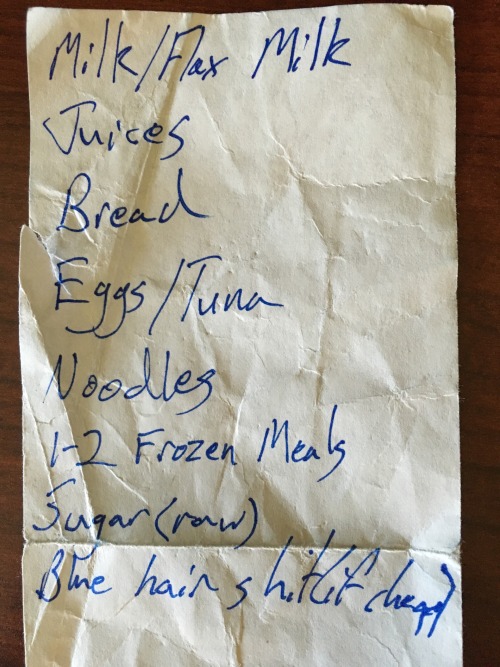 Milk/Flax Milk
Juices
Bread
Eggs/Tuna
Noodles
1-2 Frozen Meals
Sugar (raw)
Blue hair shit (if cheap)